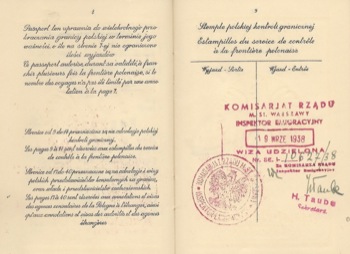 8
Paszport ten uprawnia do wielokrotnego prze-
kraczania granicy polskiej w terminie jego
ważności, o ile na stronie 7-ej nie ograniczono
ilości wyjazdów
Ce passeport autorise, durant sa validité, à fran-
chir plusieurs fois la frontière polonaise, si le
nombre de voyages n'a pas été limité par une anno-
tation à la page 7.
Stronice od 9 do 14 przeznaczone są na adnotacje polskiej
kontroli granicznej.
Les pages 9 à 14 sont réservées aux estampilles du service
de contrôle à la frontière polonaise.
Stronice od 15 do 40 przeznaczone są na adnotacje i wizy
polskich przedstawicielstw konsularnych za granicą,
oraz władz i przedstawicielstw cudzoziemskich.
Les pages 15 à 40 sont réservées aux annotations et visas
des agents consulaires de la Pologne à l'étranger, ainsi
qu'aux annotations et visas des autorités et des agents
étrangers
9
Stemple polskiej kontroli granicznej
Estampilles du service de contrôle
à la frontière polonaise
Wyjazd - Sortie
Wjazd - Entrée
KOMISARJAT RZĄDU
M. ST. WARSZAWY
INSPEKTOR EMIGRACYJNY
WRZE. 1938
WIZA UDZIELONA
Za KOMISARZA RZĄDU
H. Taube